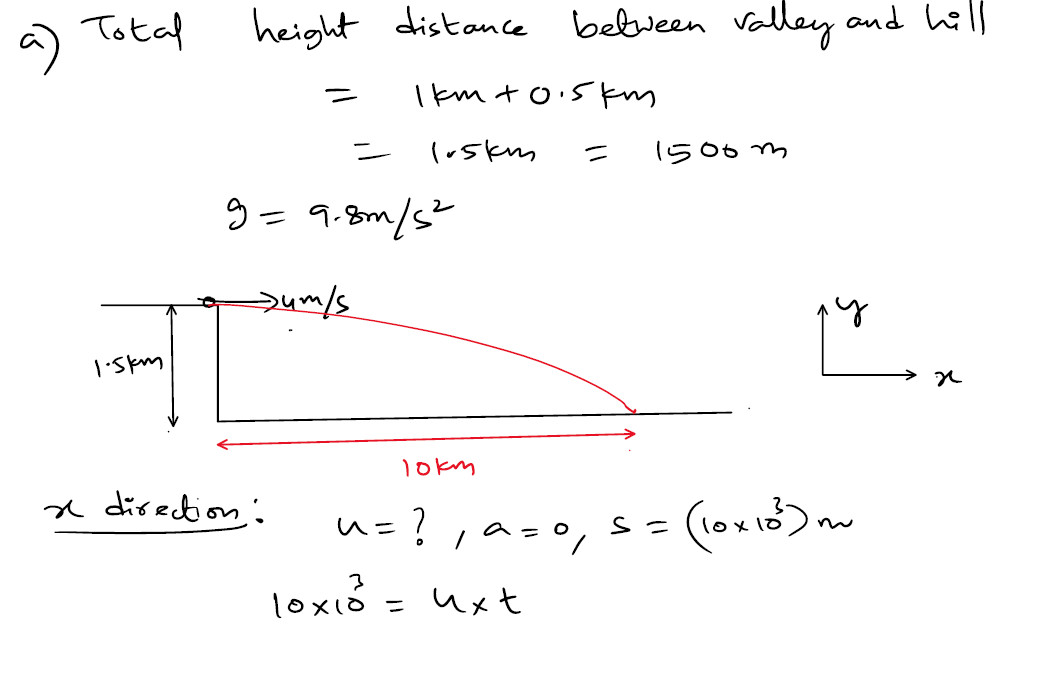 a) Total height distance between valley and hill
= 1km + 0.5km
= 1.5km = 1500 m
g = 9.8m/s²
u m/s
y
1.5km
x
10km
x direction: u = ?, a = 0, s = (10×10³) m
10×10³ = u × t